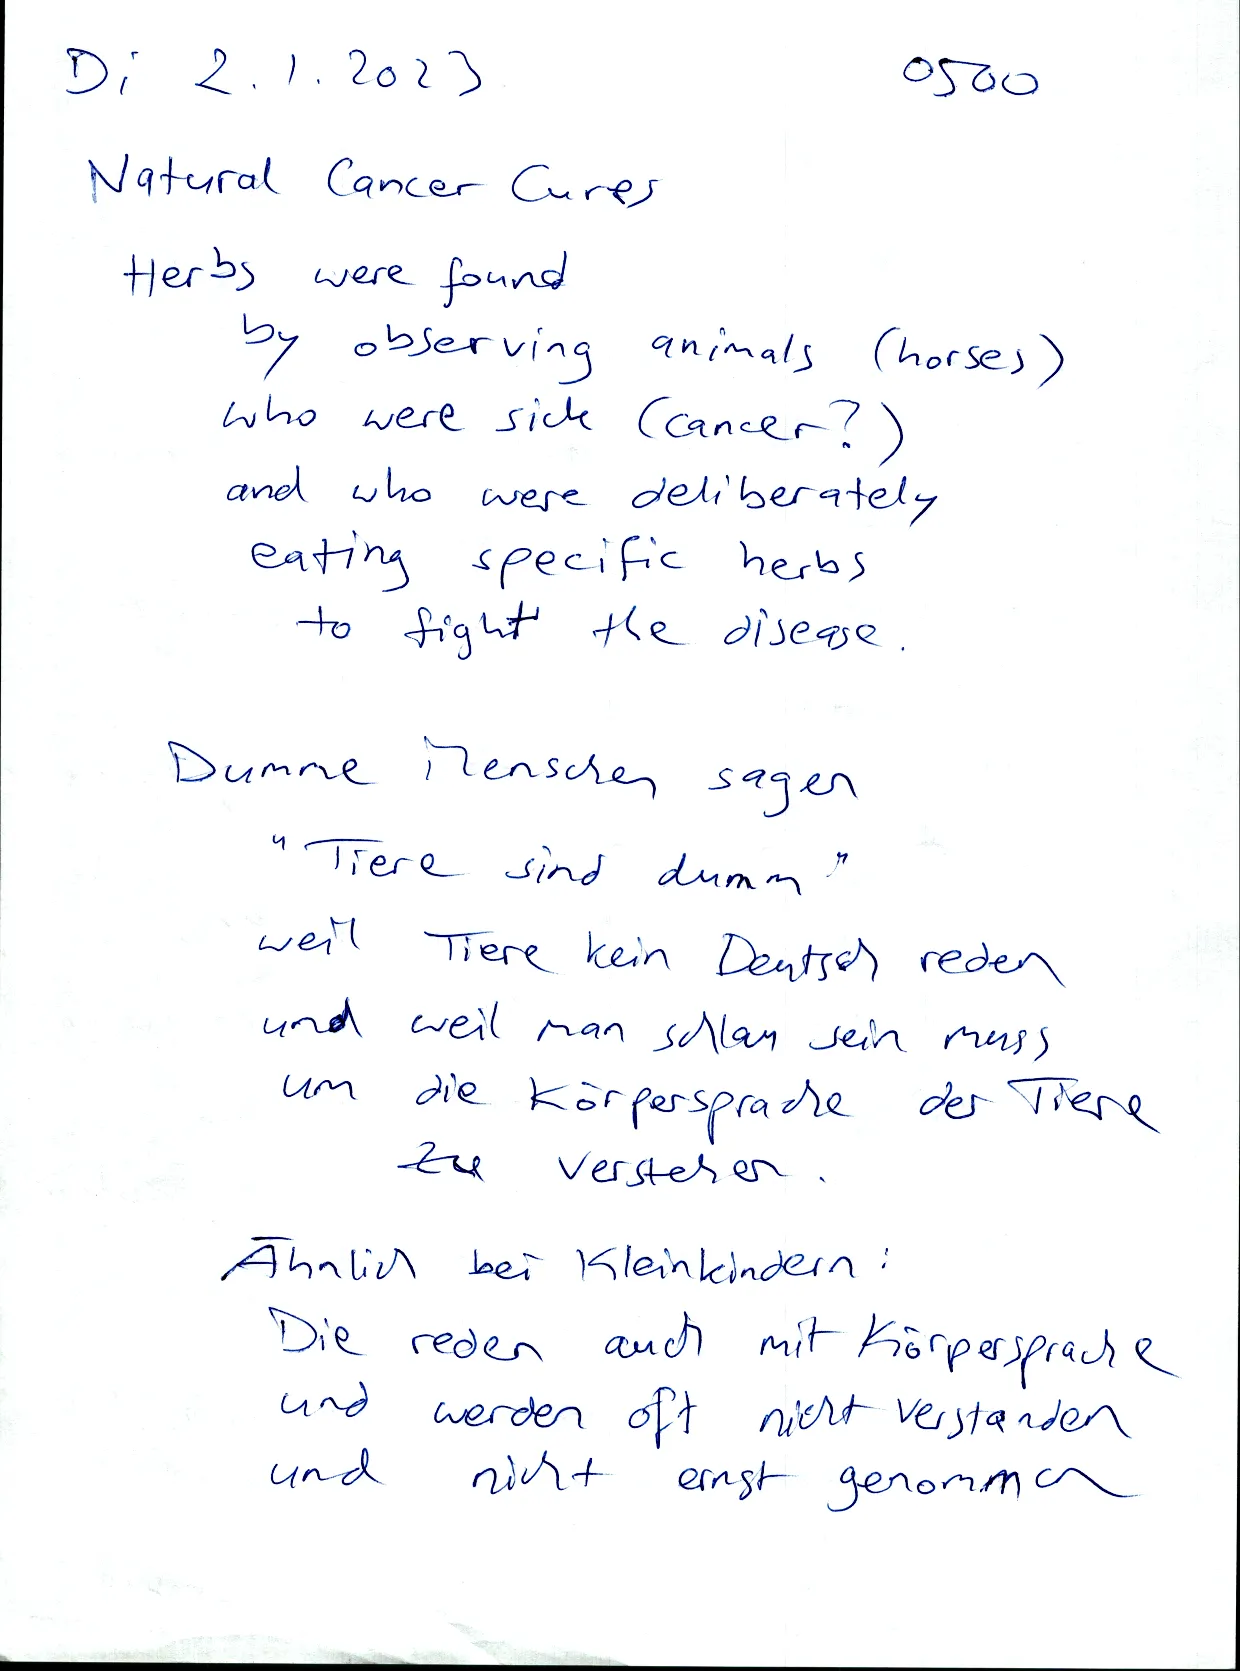 Di 2.1.2023 0500
Natural Cancer Cures
Herbs were found
by observing animals (horses)
who were sick (cancer?)
and who were deliberately
eating specific herbs
to fight the disease.
Dumme Menschen sagen
"Tiere sind dumm"
weil Tiere kein Deutsch reden
und weil man schlau sein muss
um die Körpersprache der Tiere
zu verstehen.
Ähnlich bei Kleinkindern:
Die reden auch mit Körpersprache
und werden oft nicht verstanden
und nicht ernst genommen